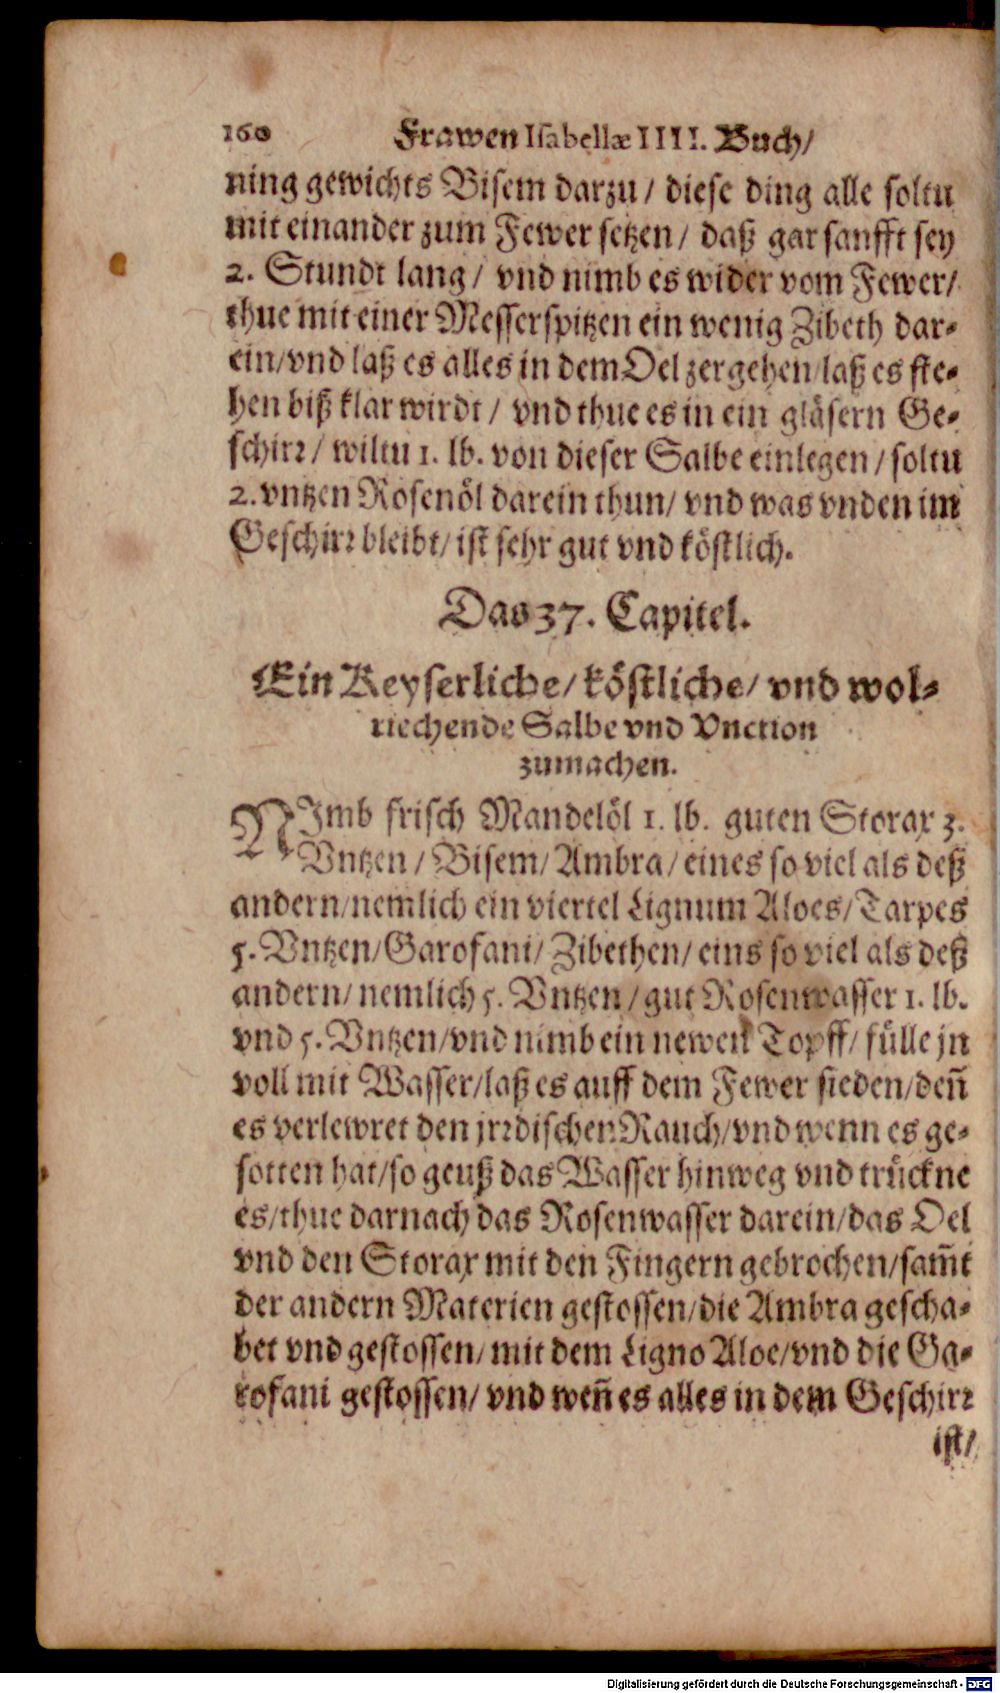 160 Frawen Isabellæ IIII. Buch/
ning gewichts Bisem darzu / diese ding alle soltu
mit einander zum Fewer setzen / daß gar sanfft sey
2. Stundt lang / vnd nimb es wider vom Fewer /
thue mit einer Messerspitzen ein wenig Zibeth dar-
ein/vnd laß es alles in dem Oel zergehen/laß es ste-
hen biß klar wirdt / vnd thue es in ein gläsern Ge-
schirr / wiltu 1. lb. von dieser Salbe einlegen / soltu
2. vntzen Rosenöl darein thun/ vnd was vnden im
Geschirr bleibt/ ist sehr gut vnd köstlich.
Das 37. Capitel.
Ein Keyserliche/ köstliche/ vnd wol-
riechende Salbe vnd Vnction
zumachen.
NImb frisch Mandelöl 1. lb. guten Storax 3.
Vntzen / Bisem/ Ambra / eines so viel als deß
andern/nemlich ein viertel Lignum Aloes/ Tarpes
5. Vntzen/Garofani/ Zibethen/ eins so viel als deß
andern/ nemlich 5. Vntzen / gut Rosenwasser 1. lb.
vnd 5. Vntzen/vnd nimb ein newen Topff/ fülle jn
voll mit Wasser/laß es auff dem Fewer sieden/deñ
es verlewret den jrrdischen Rauch/vnd wenn es ge-
sotten hat/so geuß das Wasser hinweg vnd trückne
es/thue darnach das Rosenwasser darein/das Oel
vnd den Storax mit den Fingern gebrochen/sam̃t
der andern Materien gestossen/die Ambra gescha-
bet vnd gestossen/ mit dem Ligno Aloe/vnd die Ga-
rofani gestossen/ vnd weñ es alles in dem Geschirr
ist/
Digitalisierung gefördert durch die Deutsche Forschungsgemeinschaft - DFG